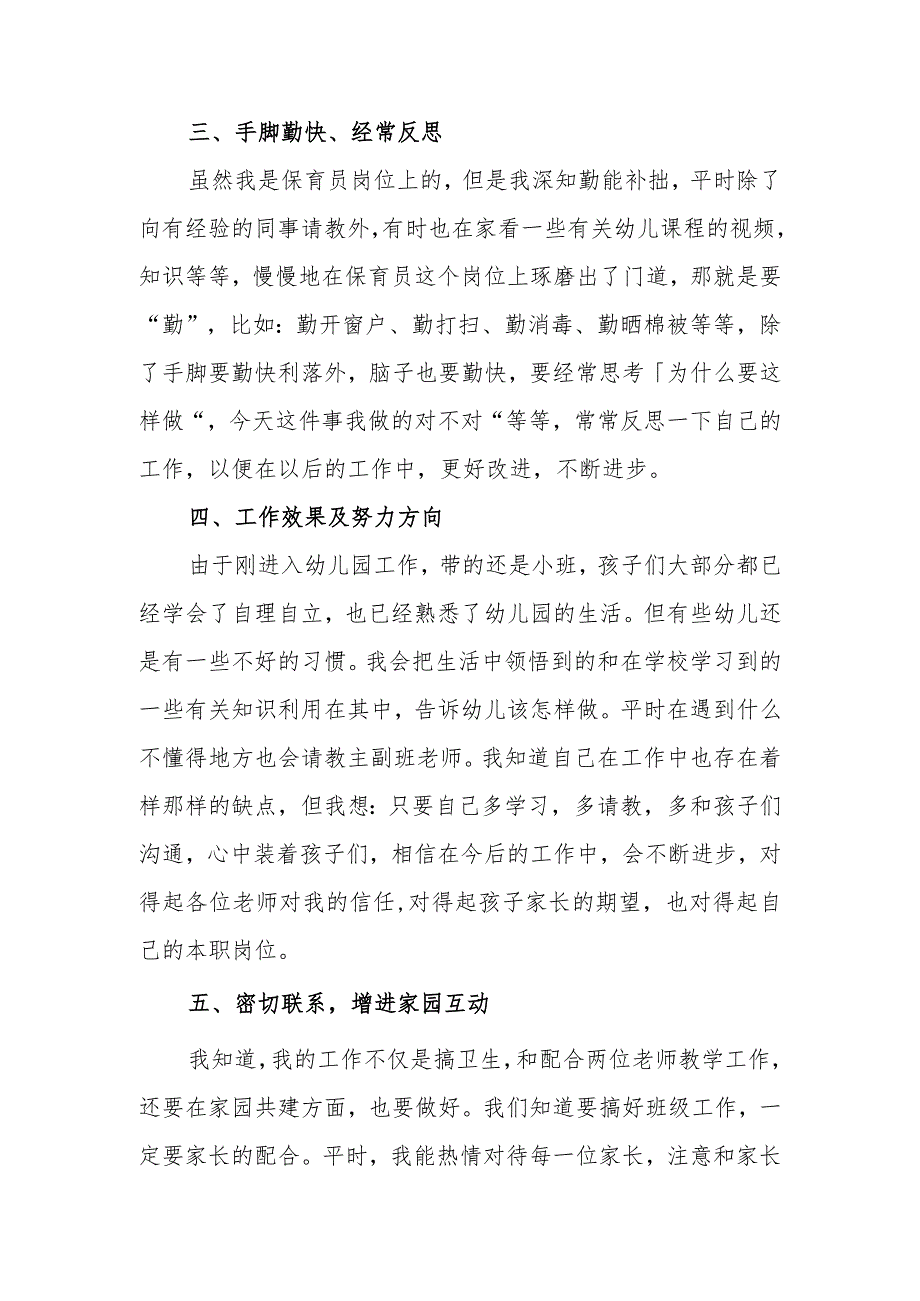 三、手脚勤快、经常反思
虽然我是保育员岗位上的，但是我深知勤能补拙，平时除了
向有经验的同事请教外，有时也在家看一些有关幼儿课程的视频，
知识等等，慢慢地在保育员这个岗位上琢磨出了门道，那就是要
“勤”，比如：勤开窗户、勤打扫、勤消毒、勤晒棉被等等，除
了手脚要勤快利落外，脑子也要勤快，要经常思考「为什么要这
样做“，今天这件事我做的对不对“等等，常常反思一下自己的
工作，以便在以后的工作中，更好改进，不断进步。
四、工作效果及努力方向
由于刚进入幼儿园工作，带的还是小班，孩子们大部分都已
经学会了自理自立，也已经熟悉了幼儿园的生活。但有些幼儿还
是有一些不好的习惯。我会把生活中领悟到的和在学校学习到的
一些有关知识利用在其中，告诉幼儿该怎样做。平时在遇到什么
不懂得地方也会请教主副班老师。我知道自己在工作中也存在着
样那样的缺点，但我想：只要自己多学习，多请教，多和孩子们
沟通，心中装着孩子们，相信在今后的工作中，会不断进步，对
得起各位老师对我的信任,对得起孩子家长的期望，也对得起自
己的本职岗位。
五、密切联系，增进家园互动
我知道，我的工作不仅是搞卫生，和配合两位老师教学工作，
还要在家园共建方面，也要做好。我们知道要搞好班级工作，一
定要家长的配合。平时，我能热情对待每一位家长，注意和家长